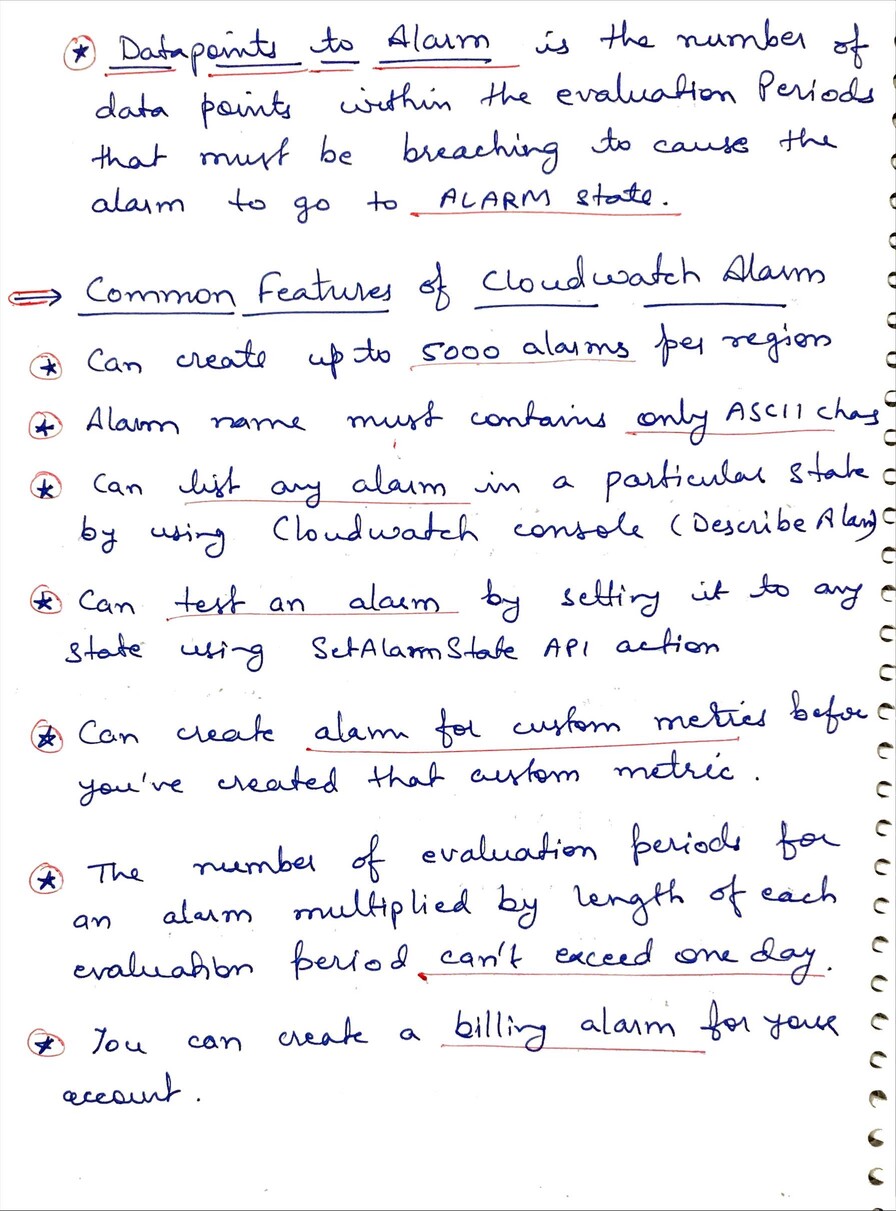 * Datapoints to Alarm is the number of
data points within the evaluation Periods
that must be breaching to cause the
alarm to go to ALARM state.
⇒ Common Features of Cloudwatch Alarm
* Can create up to 5000 alarms per region
* Alarm name must contains only ASCII chas
* Can list any alarm in a particular state
by using Cloudwatch console (Describe Alarm)
* Can test an alarm by setting it to any
state using SetAlarmState API action
* Can create alarm for custom metrics before
you've created that custom metric.
* The number of evaluation periods for
an alarm multiplied by length of each
evaluation period can't exceed one day.
* You can create a billing alarm for your
account.